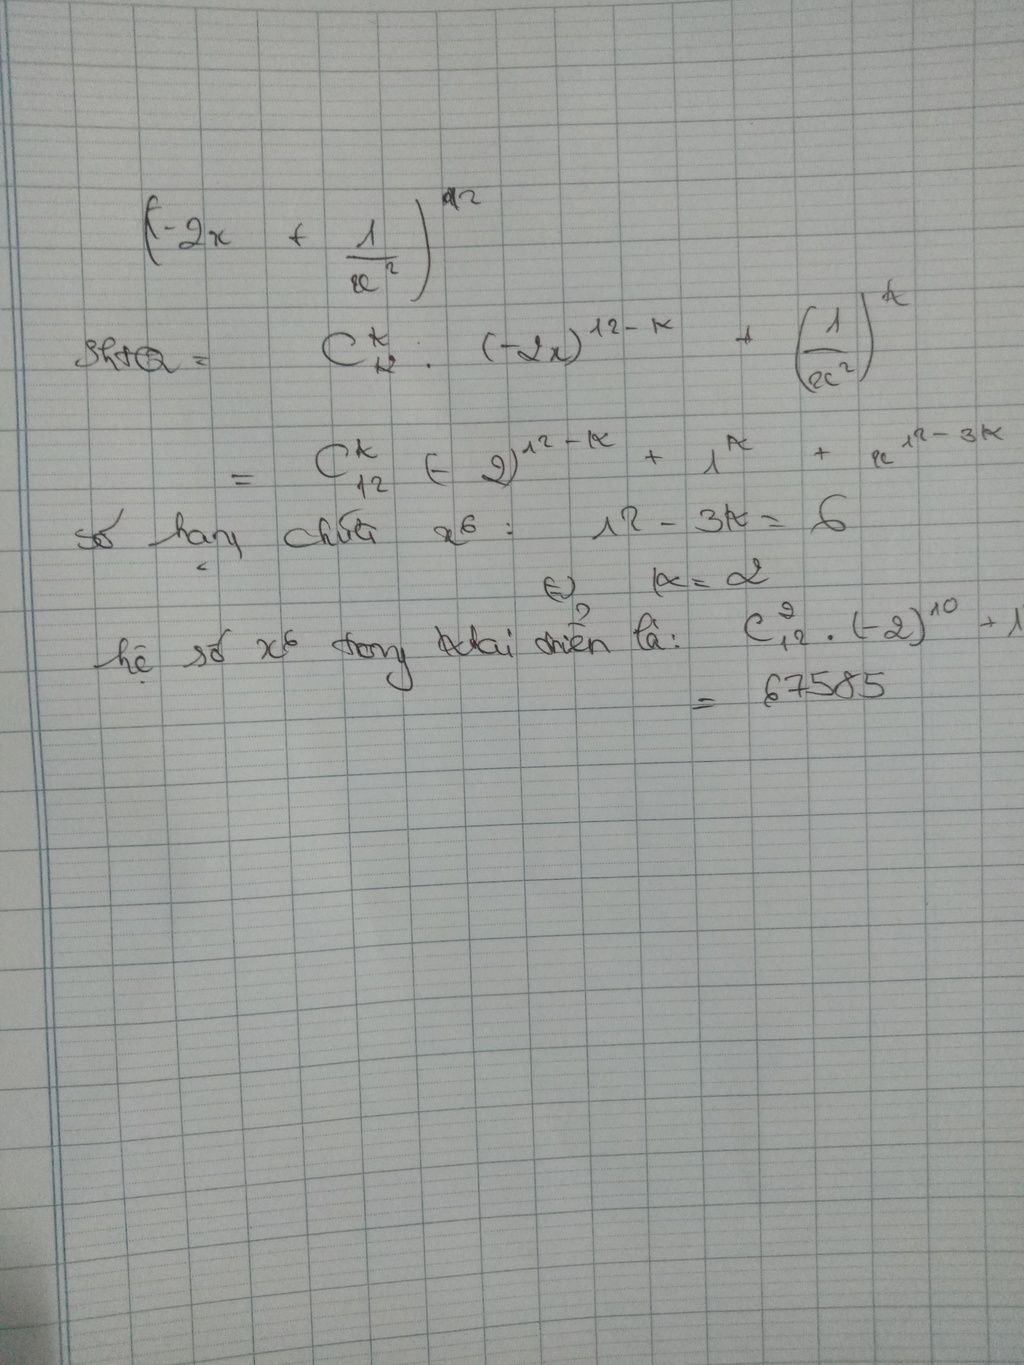 (-2x + 1/x²)¹²
SHTQ = C₁₂ᵏ . (-2x)¹²⁻ᵏ + (1/x²)ᵏ
= C₁₂ᵏ (-2)¹²⁻ᵏ + 1ᵏ + x¹²⁻³ᵏ
số hạng chứa x⁶ : 12 - 3k = 6
(=) k = 2
hệ số x⁶ trong khai triển là: C₁₂² . (-2)¹⁰ + 1
= 67585